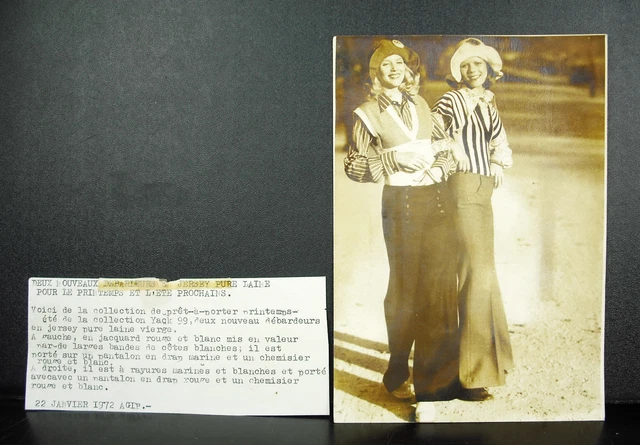 DEUX NOUVEAUX DEBARDEURS JERSEY PURE LAINE
POUR LE PRINTEMPS ET L'ETE PROCHAINS.
Voici de la collection de prêt-à-porter printemps-
été de la collection Yack 99,deux nouveau débardeurs
en jersey pure laine vierge.
A gauche, en jacquard rouge et blanc mis en valeur
par de larges bandes de côtes blanches; il est
porté sur un pantalon en drap marine et un chemisier
rouge et blanc.
A droite, il est à rayures marines et blanches et porté
avecavec un pantalon en drap rouge et un chemisier
rouge et blanc.
22 JANVIER 1972 AGIP.-